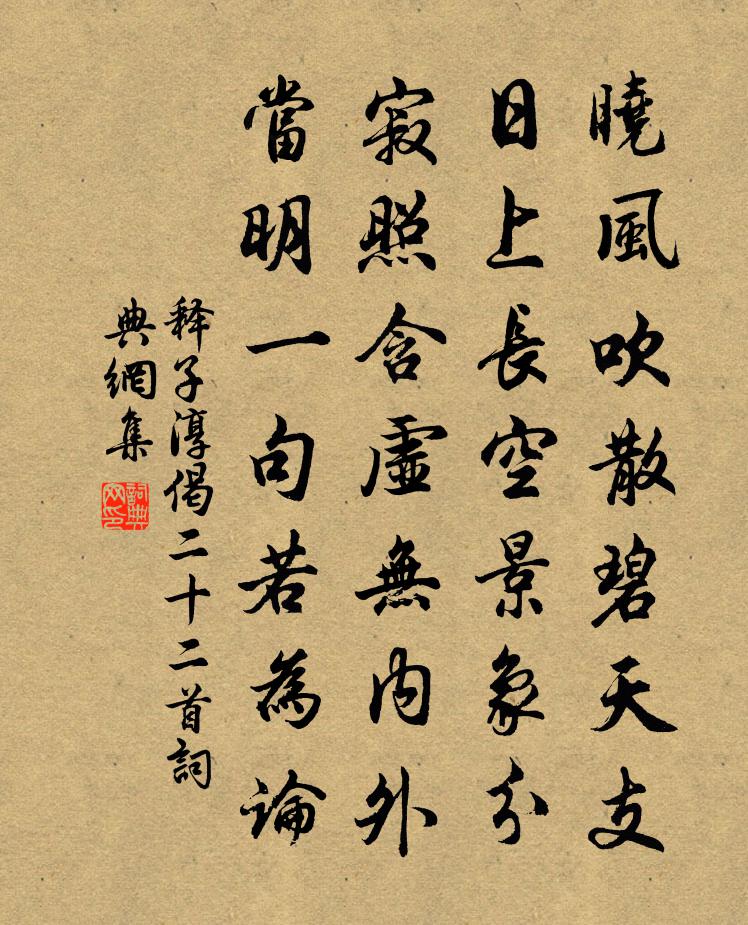 曉風吹散碧天支
日上長空景象分
寂照含虛無内外
當明一句若為論
释子淳偈二十二首詞
典網集
詞典
网印